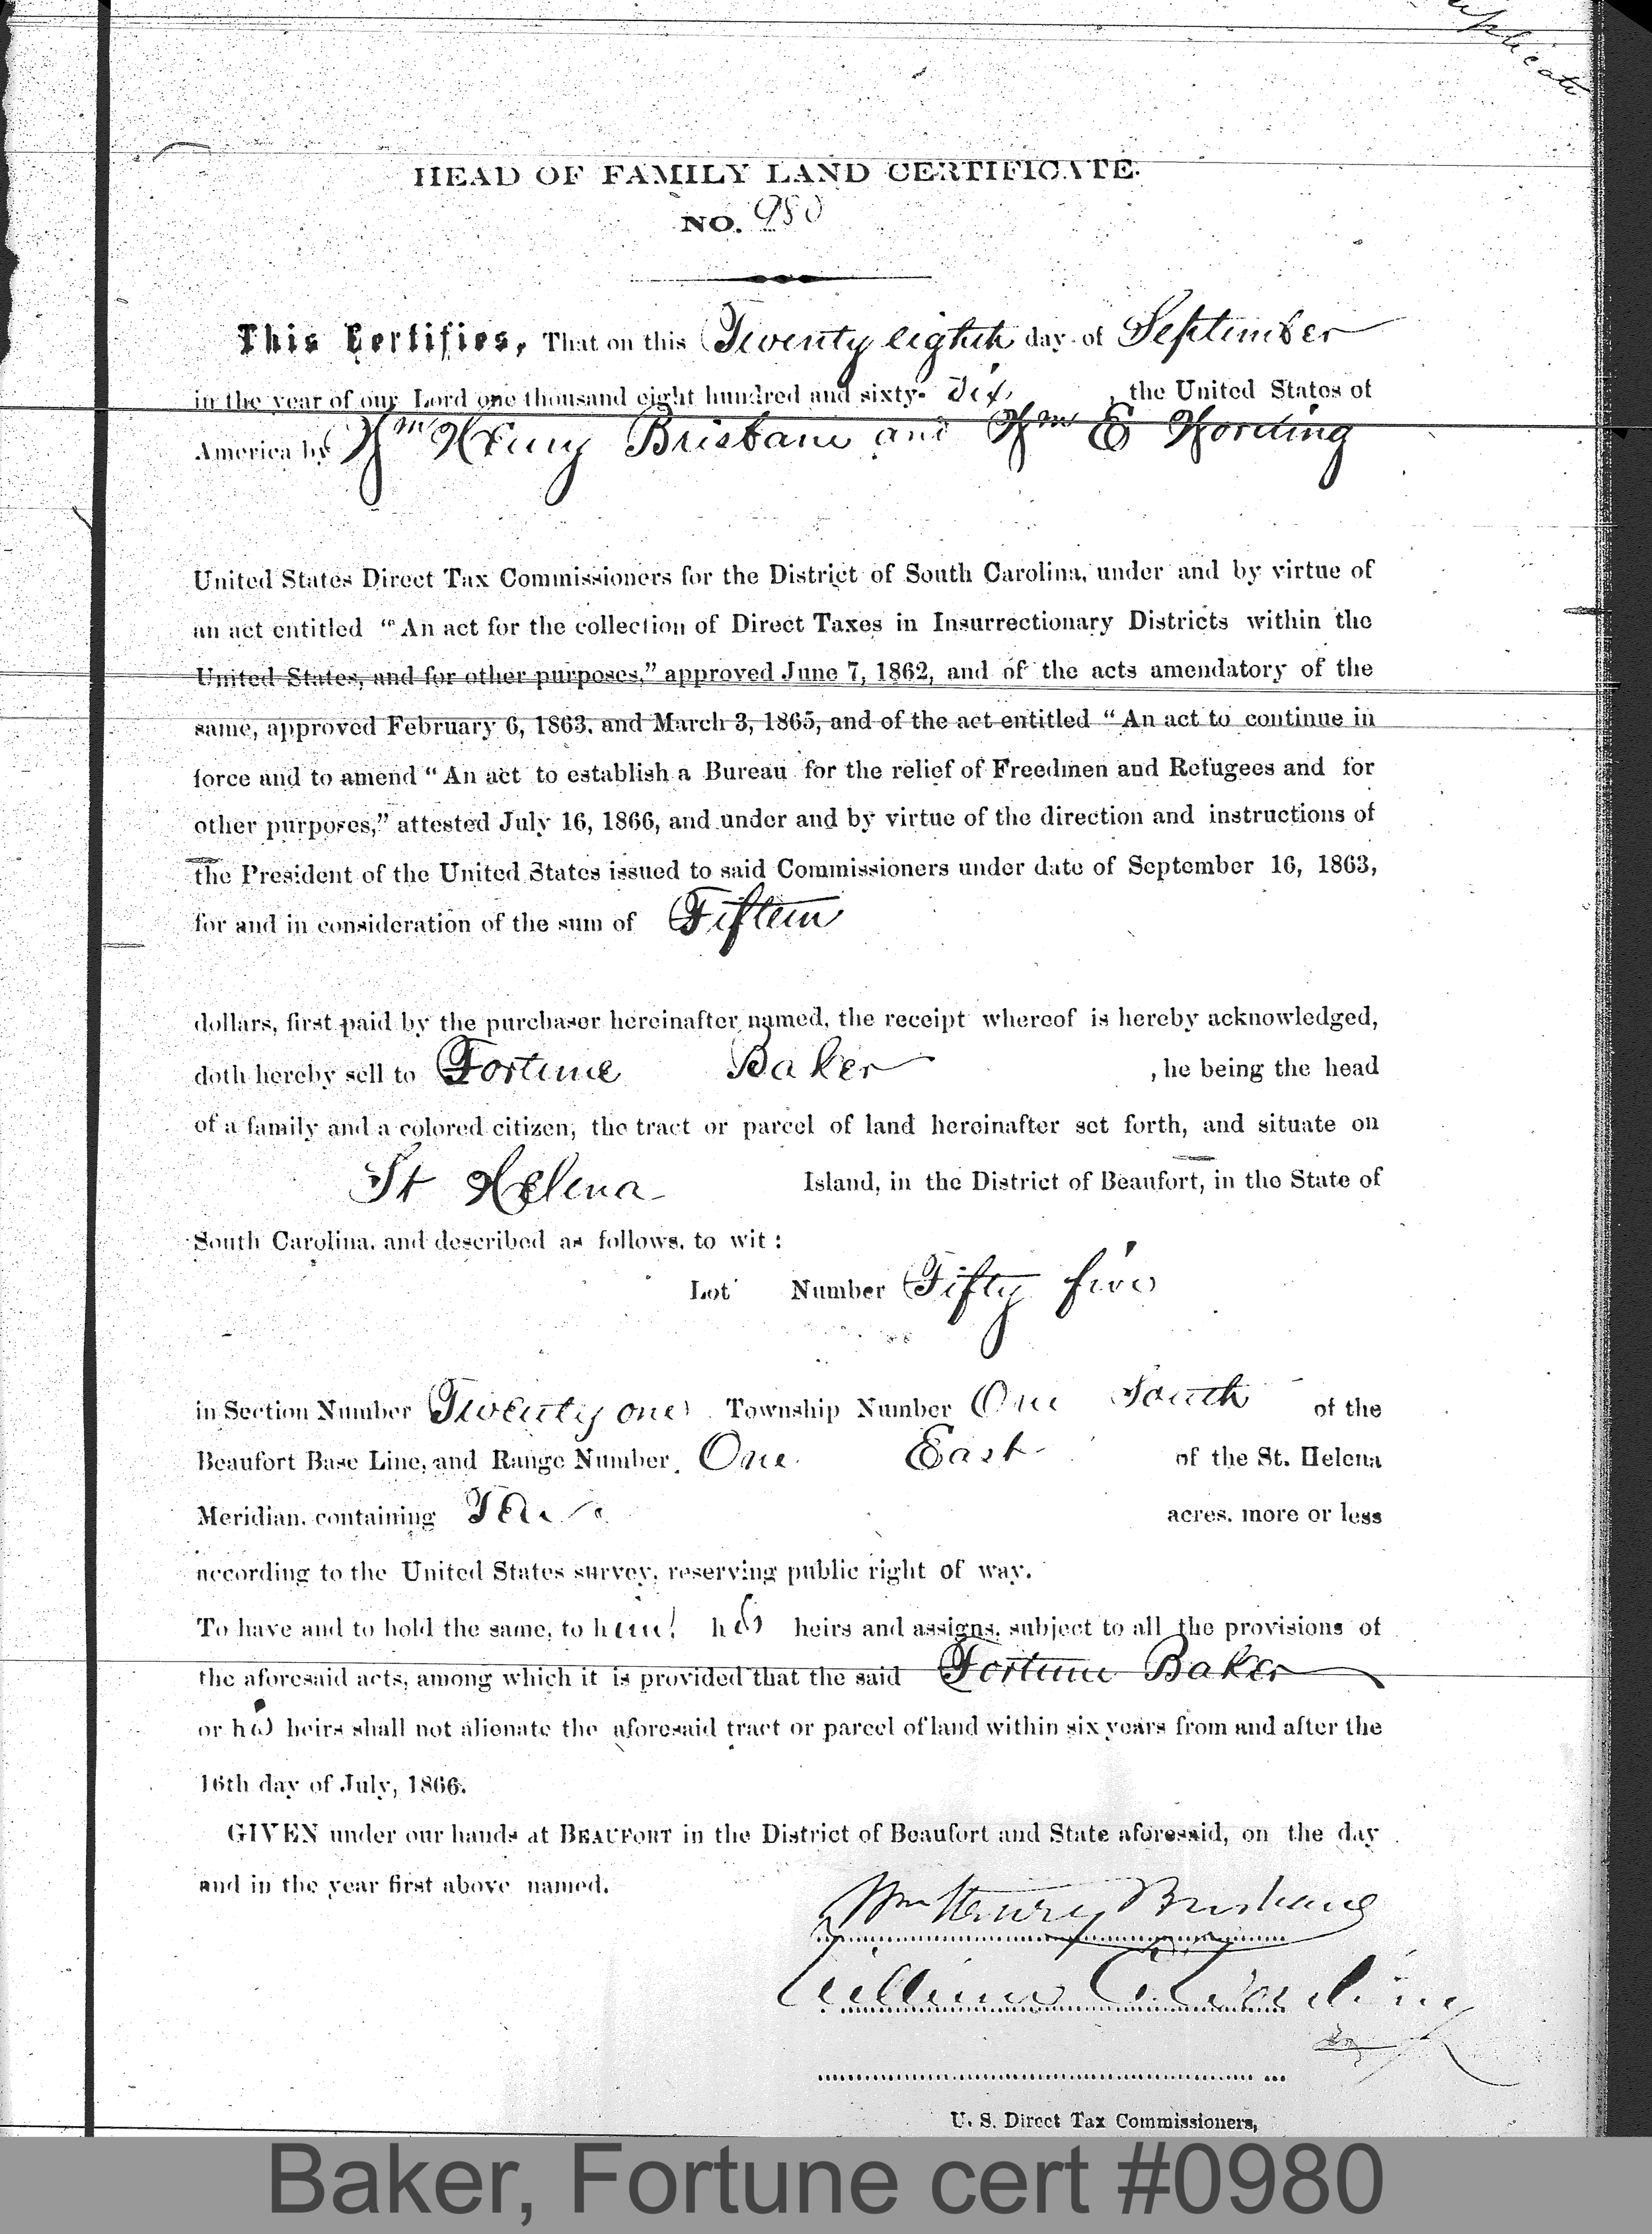 uplicate
HEAD OF FAMILY LAND CERTIFICATE.
NO. 980
This Certifies, That on this Twenty eighth day of September
in the year of our Lord one thousand eight hundred and sixty- six, the United States of
America by Wm Henry Brisbane and Wm E Wording
United States Direct Tax Commissioners for the District of South Carolina, under and by virtue of
an act entitled "An act for the collection of Direct Taxes in Insurrectionary Districts within the
United States, and for other purposes," approved June 7, 1862, and of the acts amendatory of the
same, approved February 6, 1863, and March 3, 1865, and of the act entitled "An act to continue in
force and to amend "An act to establish a Bureau for the relief of Freedmen and Refugees and for
other purposes," attested July 16, 1866, and under and by virtue of the direction and instructions of
the President of the United States issued to said Commissioners under date of September 16, 1863,
for and in consideration of the sum of Fifteen
dollars, first paid by the purchaser hereinafter named, the receipt whereof is hereby acknowledged,
doth hereby sell to Fortune Baker , he being the head
of a family and a colored citizen, the tract or parcel of land hereinafter set forth, and situate on
St Helena Island, in the District of Beaufort, in the State of
South Carolina, and described as follows, to wit:
Lot Number Fifty five
in Section Number Twenty one Township Number One South of the
Beaufort Base Line, and Range Number One East of the St. Helena
Meridian, containing Ten acres, more or less
according to the United States survey, reserving public right of way.
To have and to hold the same, to him, his heirs and assigns, subject to all the provisions of
the aforesaid acts, among which it is provided that the said Fortune Baker
or his heirs shall not alienate the aforesaid tract or parcel of land within six years from and after the
16th day of July, 1866.
GIVEN under our hands at BEAUFORT in the District of Beaufort and State aforesaid, on the day
and in the year first above named.
Wm Henry Brisbane
William E. Wording
U. S. Direct Tax Commissioners,
Baker, Fortune cert #0980